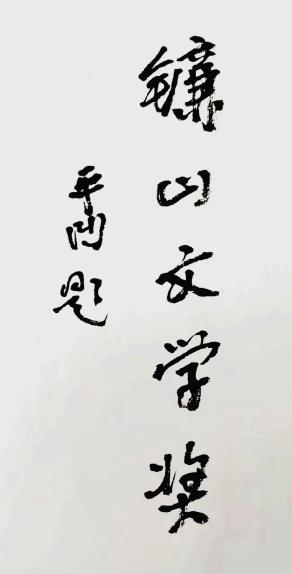 镰山文学奖
平凹题